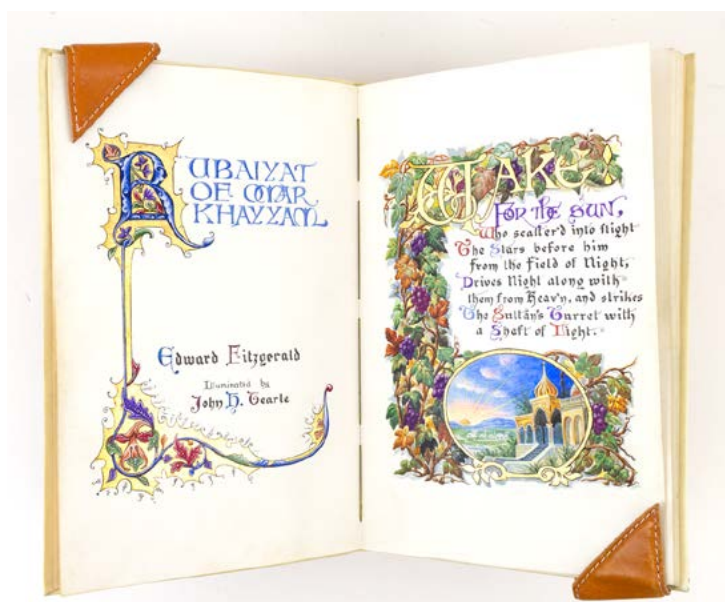 RUBAIYAT
OF OMAR
KHAYYAM
Edward Fitzgerald
Illuminated by
John H. Tearle
WAKE!
FOR the SUN,
Who scatter'd into flight
The Stars before him
from the field of Night,
Drives Night along with
them from Heav'n, and strikes
The Sultán's Turret with
a Shaft of Light.